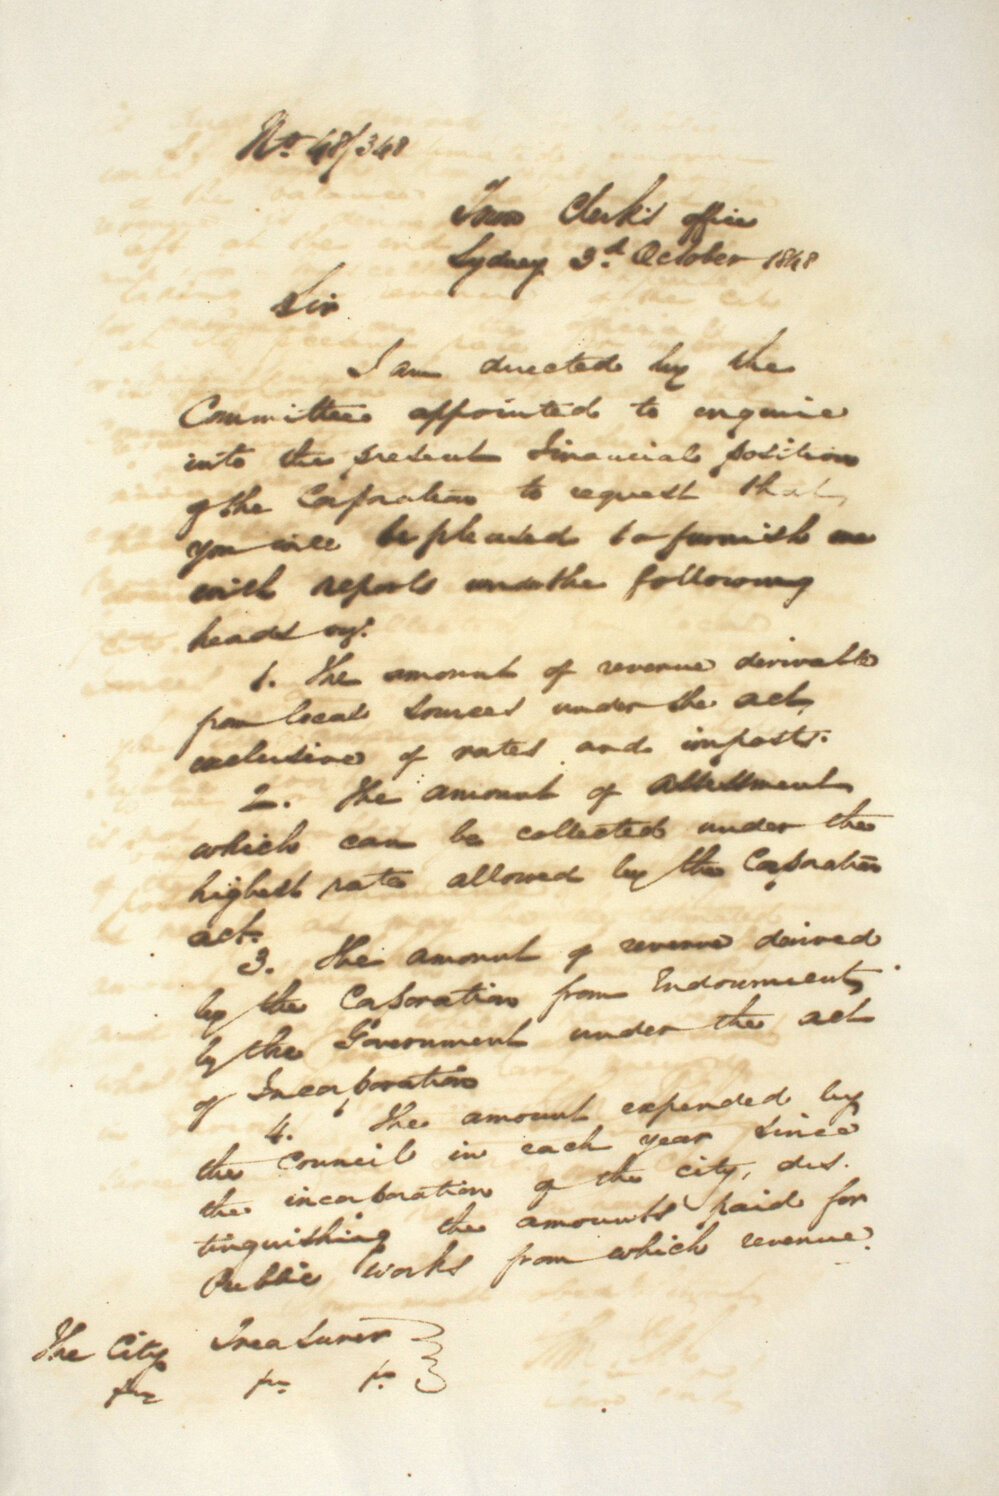 No 48/348
Town Clerk's office
Sydney 3d October 1848
Sir
I am directed by the
Committee appointed to enquire
into the present Financial position
of the Corporation to request that
you will be pleased to furnish me
with reports under the following
heads vz:
1. The amount of revenue derivable
from local sources under the act,
exclusive of rates and imposts.
2. The amount of assessment
which can be collected under the
highest rate allowed by the Corporation
act.
3. The amount of revenue derived
by the Corporation from Endowment,
by the Government under the act
of Incorporation
4. The amount expended by
the Council in each year since
the incorporation of the city, dis.
tinguishing the amounts paid for
Public Works from which revenue
The City Treasurer